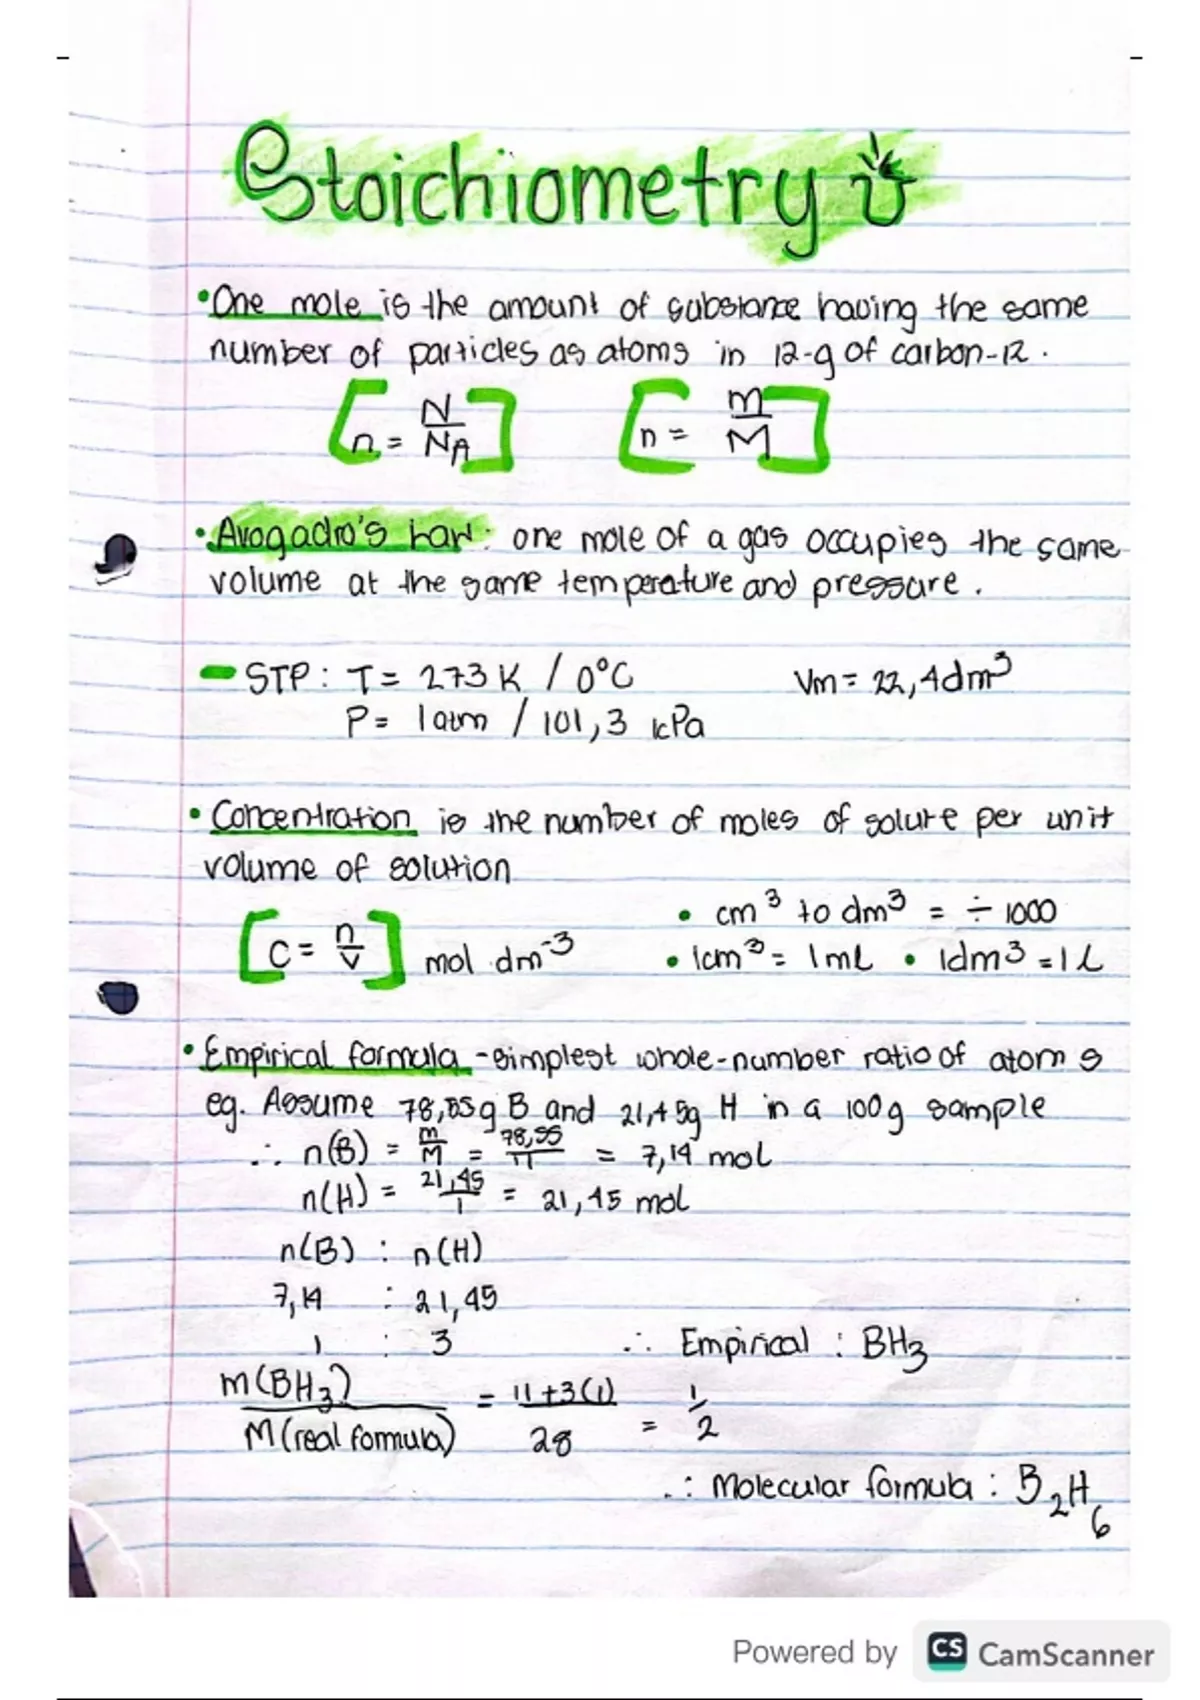 Stoichiometry
• One mole is the amount of substance having the same
number of particles as atoms in 12-g of carbon-12.
[n = N/NA] [n = m/M]
• Avogadro's Law: one mole of a gas occupies the same
volume at the same temperature and pressure.
- STP: T = 273 K / 0°C Vm = 22,4dm³
P = 1 atm / 101,3 kPa
• Concentration is the number of moles of solute per unit
volume of solution
• cm³ to dm³ = ÷ 1000
[C = n/v] mol·dm⁻³ • 1cm³ = 1mL • 1dm³ = 1L
• Empirical formula - simplest whole-number ratio of atoms
eg. Assume 78,55g B and 21,45g H in a 100g sample
∴ n(B) = m/M = 78,55/11 = 7,14 mol
n(H) = 21,45/1 = 21,45 mol
n(B) : n(H)
7,14 : 21,45
1 : 3 ∴ Empirical : BH₃
m(BH₃)/M(real formula) = 11+3(1)/28 = 1/2
∴ Molecular formula : B₂H₆
Powered by CS CamScanner